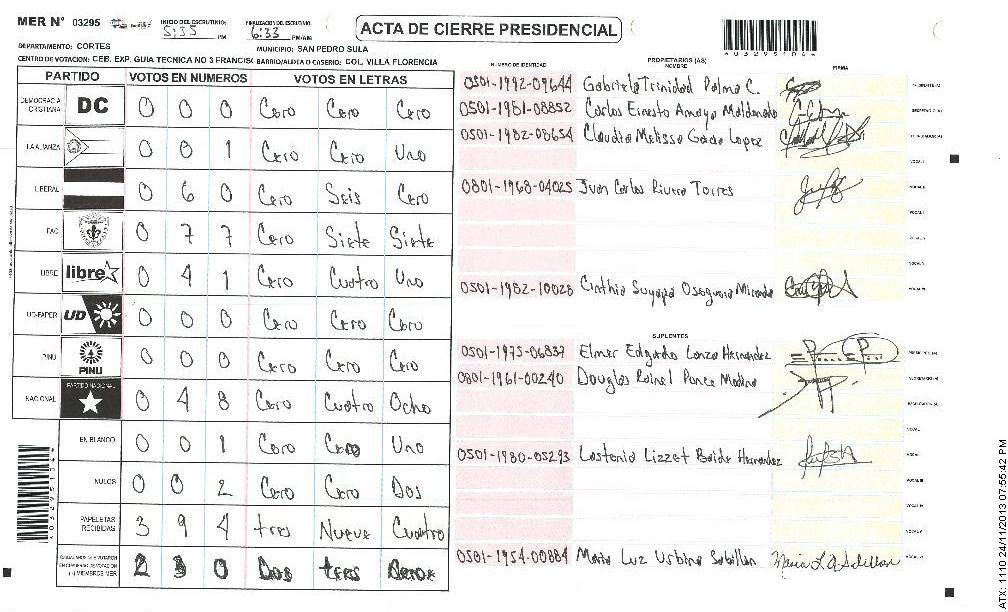 MER N° 03295
INICIO DEL ESCRUTINIO: 5:35 PM
FINALIZACION DEL ESCRUTINIO: 6:33 PM/AM
ACTA DE CIERRE PRESIDENCIAL
DEPARTAMENTO: CORTES
MUNICIPIO: SAN PEDRO SULA
CENTRO DE VOTACION: CEB. EXP. GUIA TECNICA NO 3 FRANCISC BARRIO/ALDEA O CASERIO: COL. VILLA FLORENCIA
PARTIDO VOTOS EN NUMEROS VOTOS EN LETRAS
DEMOCRACIA CRISTIANA DC 0 0 0 Cero Cero Cero
LA ALIANZA 0 0 1 Cero Cero Uno
LIBERAL 0 6 0 Cero Seis Cero
PAC 0 7 7 Cero Siete Siete
LIBRE libre 0 4 1 Cero Cuatro Uno
UD-FAPER UD 0 0 0 Cero Cero Cero
PINU PINU 0 0 0 Cero Cero Cero
NACIONAL PARTIDO NACIONAL 0 4 8 Cero Cuatro Ocho
EN BLANCO 0 0 1 Cero Cero Uno
NULOS 0 0 2 Cero Cero Dos
PAPELETAS RECIBIDAS 3 9 4 tres Nueve Cuatro
2 3 0 Dos tres
NUMERO DE IDENTIDAD
PROPIETARIOS (AS)
NOMBRE
FIRMA
0501-1992-09644 Gabriela Trinidad Palma C.
0501-1981-08852 Carlos Ernesto Amaya Maldonado
0501-1982-08654 Claudia Melissa Garcia Lopez
0801-1968-04025 Juan Carlos Rivera Torres
0501-1982-10028 Cinthia Suyapa Oseguera Miranda
SUPLENTES
0501-1975-06837 Elmer Edgardo Lanza Hernandez
0801-1961-00240 Douglas Ponce Medina
0501-1980-05293 Lastenia Lizzet Hernandez
0501-1954-00884 Maria Luz Urbina Sabillon
ATX: 1110 24/11/2013 07:55:42 PM